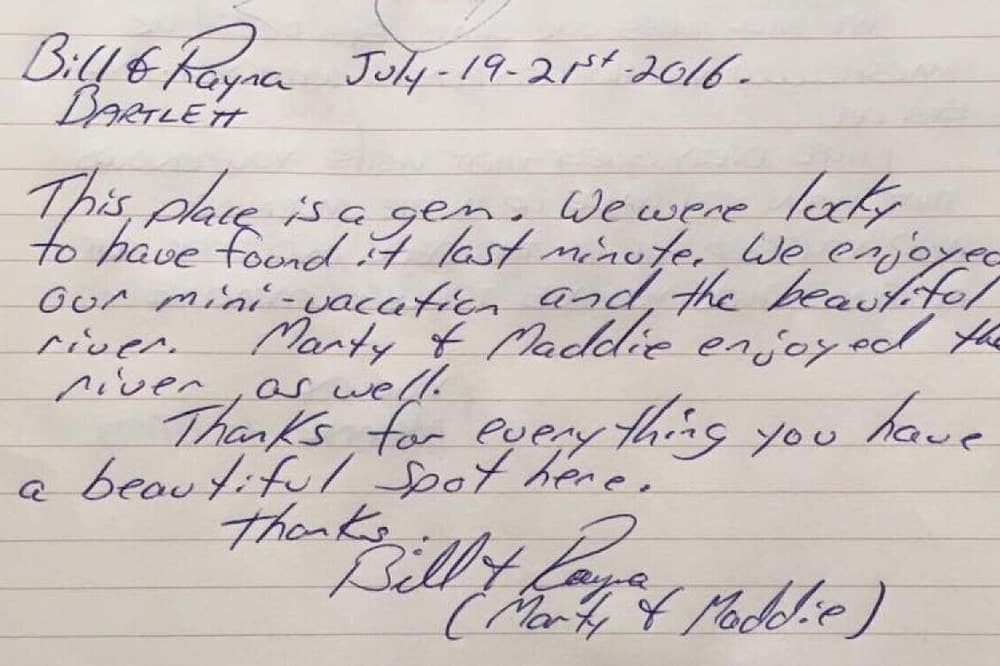 Bill & Rayna July-19-21st-2016.
BARTLETT
This place is a gem. We were lucky
to have found it last minute. We enjoyed
our mini-vacation and the beautiful
river. Marty & Maddie enjoyed the
river as well.
Thanks for everything you have
a beautiful spot here.
Thanks.
Bill & Rayna
(Marty & Maddie)